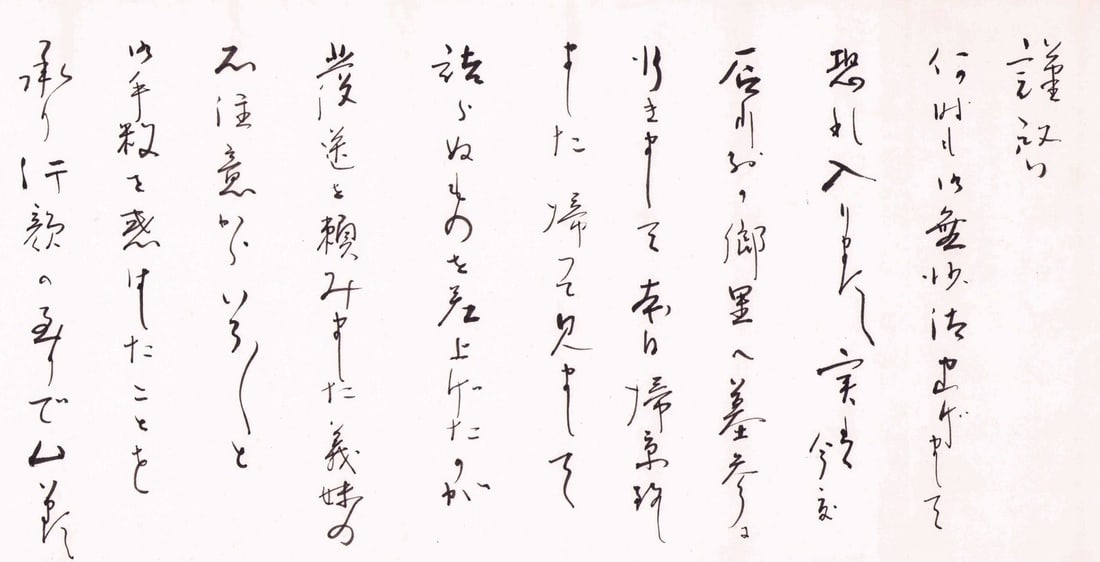 謹啓
何時も御無沙汰申上げまして
恐れ入ります 実は今度
石川の郷里へ墓参に
行きまして本日帰京致し
ました 帰って見まして
詰らぬものを差上げたのが
発送を頼みました義妹の
不注意からいろ〱と
御手数を惑はしたことを
承り汗顔の至りで